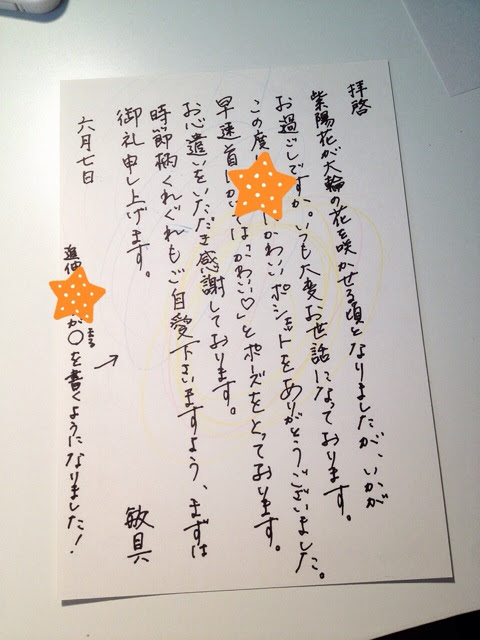 拝啓
紫陽花が大輪の花を咲かせる頃となりましたが、いかが
お過ごしですか。いつも大変お世話になっております。
この度 かわいいポシェットをありがとうございました。
早速首 かわいい♡」とポーズをとっております。
お心遣いをいただき感謝しております。
時節柄くれぐれもご自愛下さいますよう、まずは
御礼申し上げます。
敬具
六月七日
追伸
が〇を書くようになりました！
まる